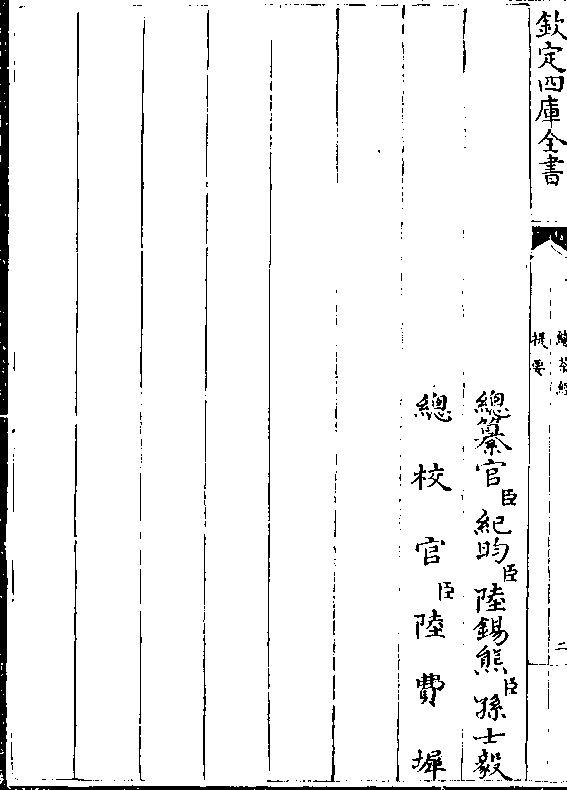 欽定四庫全書
續茶經
提要
二
總纂官臣紀昀臣陸錫熊臣孫士毅
總校官臣陸費墀